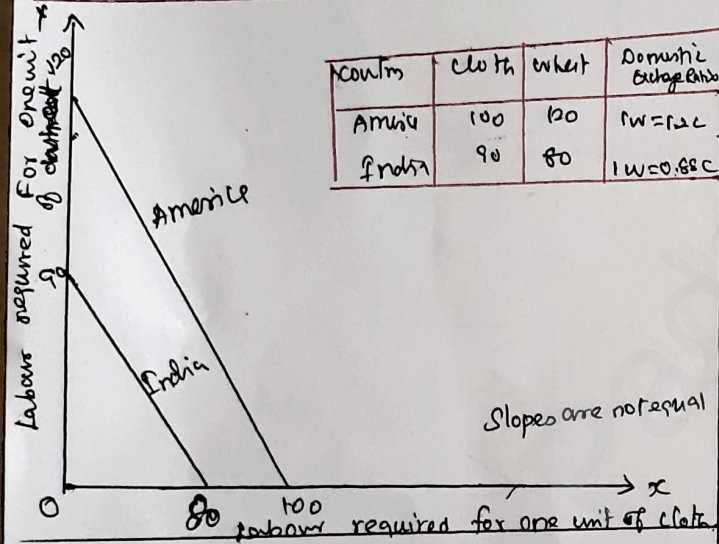 x
120
90
Labour required For one unit
of
America
India
Country cloth wheat Domestic
Exchage Ratio
America 100 120 1W=1.2C
India 90 80 1W=0.88C
Slopes are not equal
0
80
100
x
Labour required for one unit of cloth